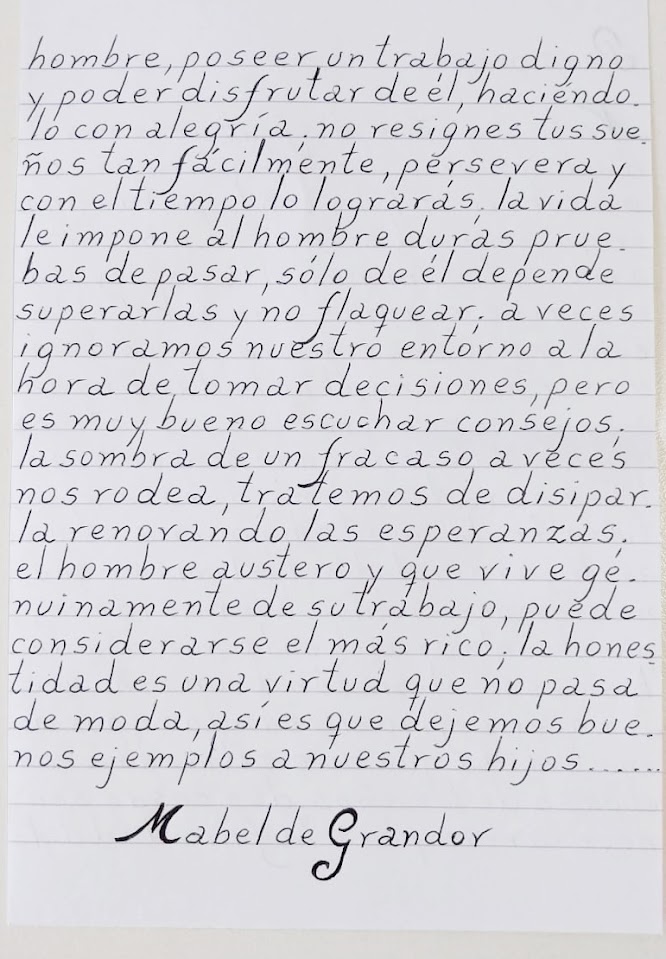 hombre, poseer un trabajo digno
y poder disfrutar de él, haciéndo.
lo con alegría; no resignes tus sue.
ños tan fácilmente, persevera y
con el tiempo lo lograrás; la vida
le impone al hombre duras prue.
bas de pasar, sólo de él depende
superarlas y no flaquear; a veces
ignoramos nuestro entorno a la
hora de tomar decisiones, pero
es muy bueno escuchar consejos;
la sombra de un fracaso a veces
nos rodea, tratemos de disipar.
la renovando las esperanzas;
el hombre austero y que vive ge.
nuinamente de su trabajo, puede
considerarse el más rico; la hones_
tidad es una virtud que no pasa
de moda, así es que dejemos bue.
nos ejemplos a nuestros hijos.......
Mabel de Grandor